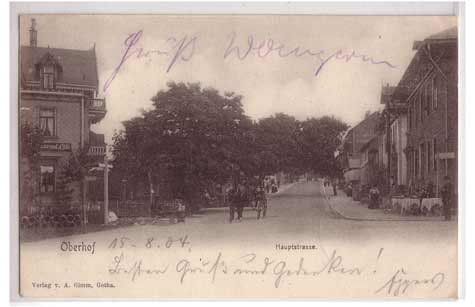 Gruß
Oberhof 15-8.04. Hauptstrasse.
Besten Gruß und Gedenken!
Verlag v. A. Gimm, Gotha.